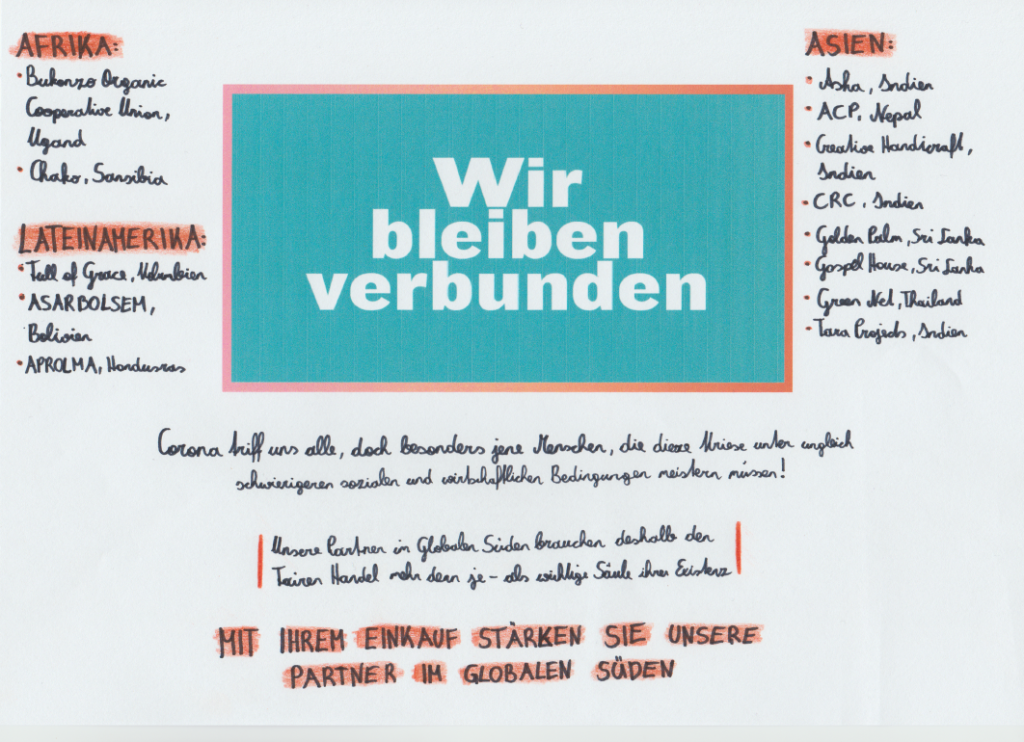 AFRIKA:
• Bukonzo Organic
Cooperative Union,
Ugand
• Chako, Sansibia
LATEINAMERIKA:
• Tall of Grace, Kolumbien
• ASARBOLSEM,
Bolivien
• APROLMA, Honduras
Wir
bleiben
verbunden
ASIEN:
• Asha, Indien
• ACP, Nepal
• Creative Handicraft,
Indien
• CRC, Indien
• Golden Palm, Sri Lanka
• Gospel House, Sri Lanka
• Green Net, Thailand
• Tara Projects, Indien
Corona triff uns alle, doch besonders jene Menschen, die diese Kriese unter ungleich
schwierigeren sozialen und wirtschaftlichen Bedingungen meistern müssen!
Unsere Partner im Globalen Süden brauchen deshalb den
Fairen Handel mehr denn je - als wichtige Säule ihrer Existenz
MIT IHREM EINKAUF STÄRKEN SIE UNSERE
PARTNER IM GLOBALEN SÜDEN